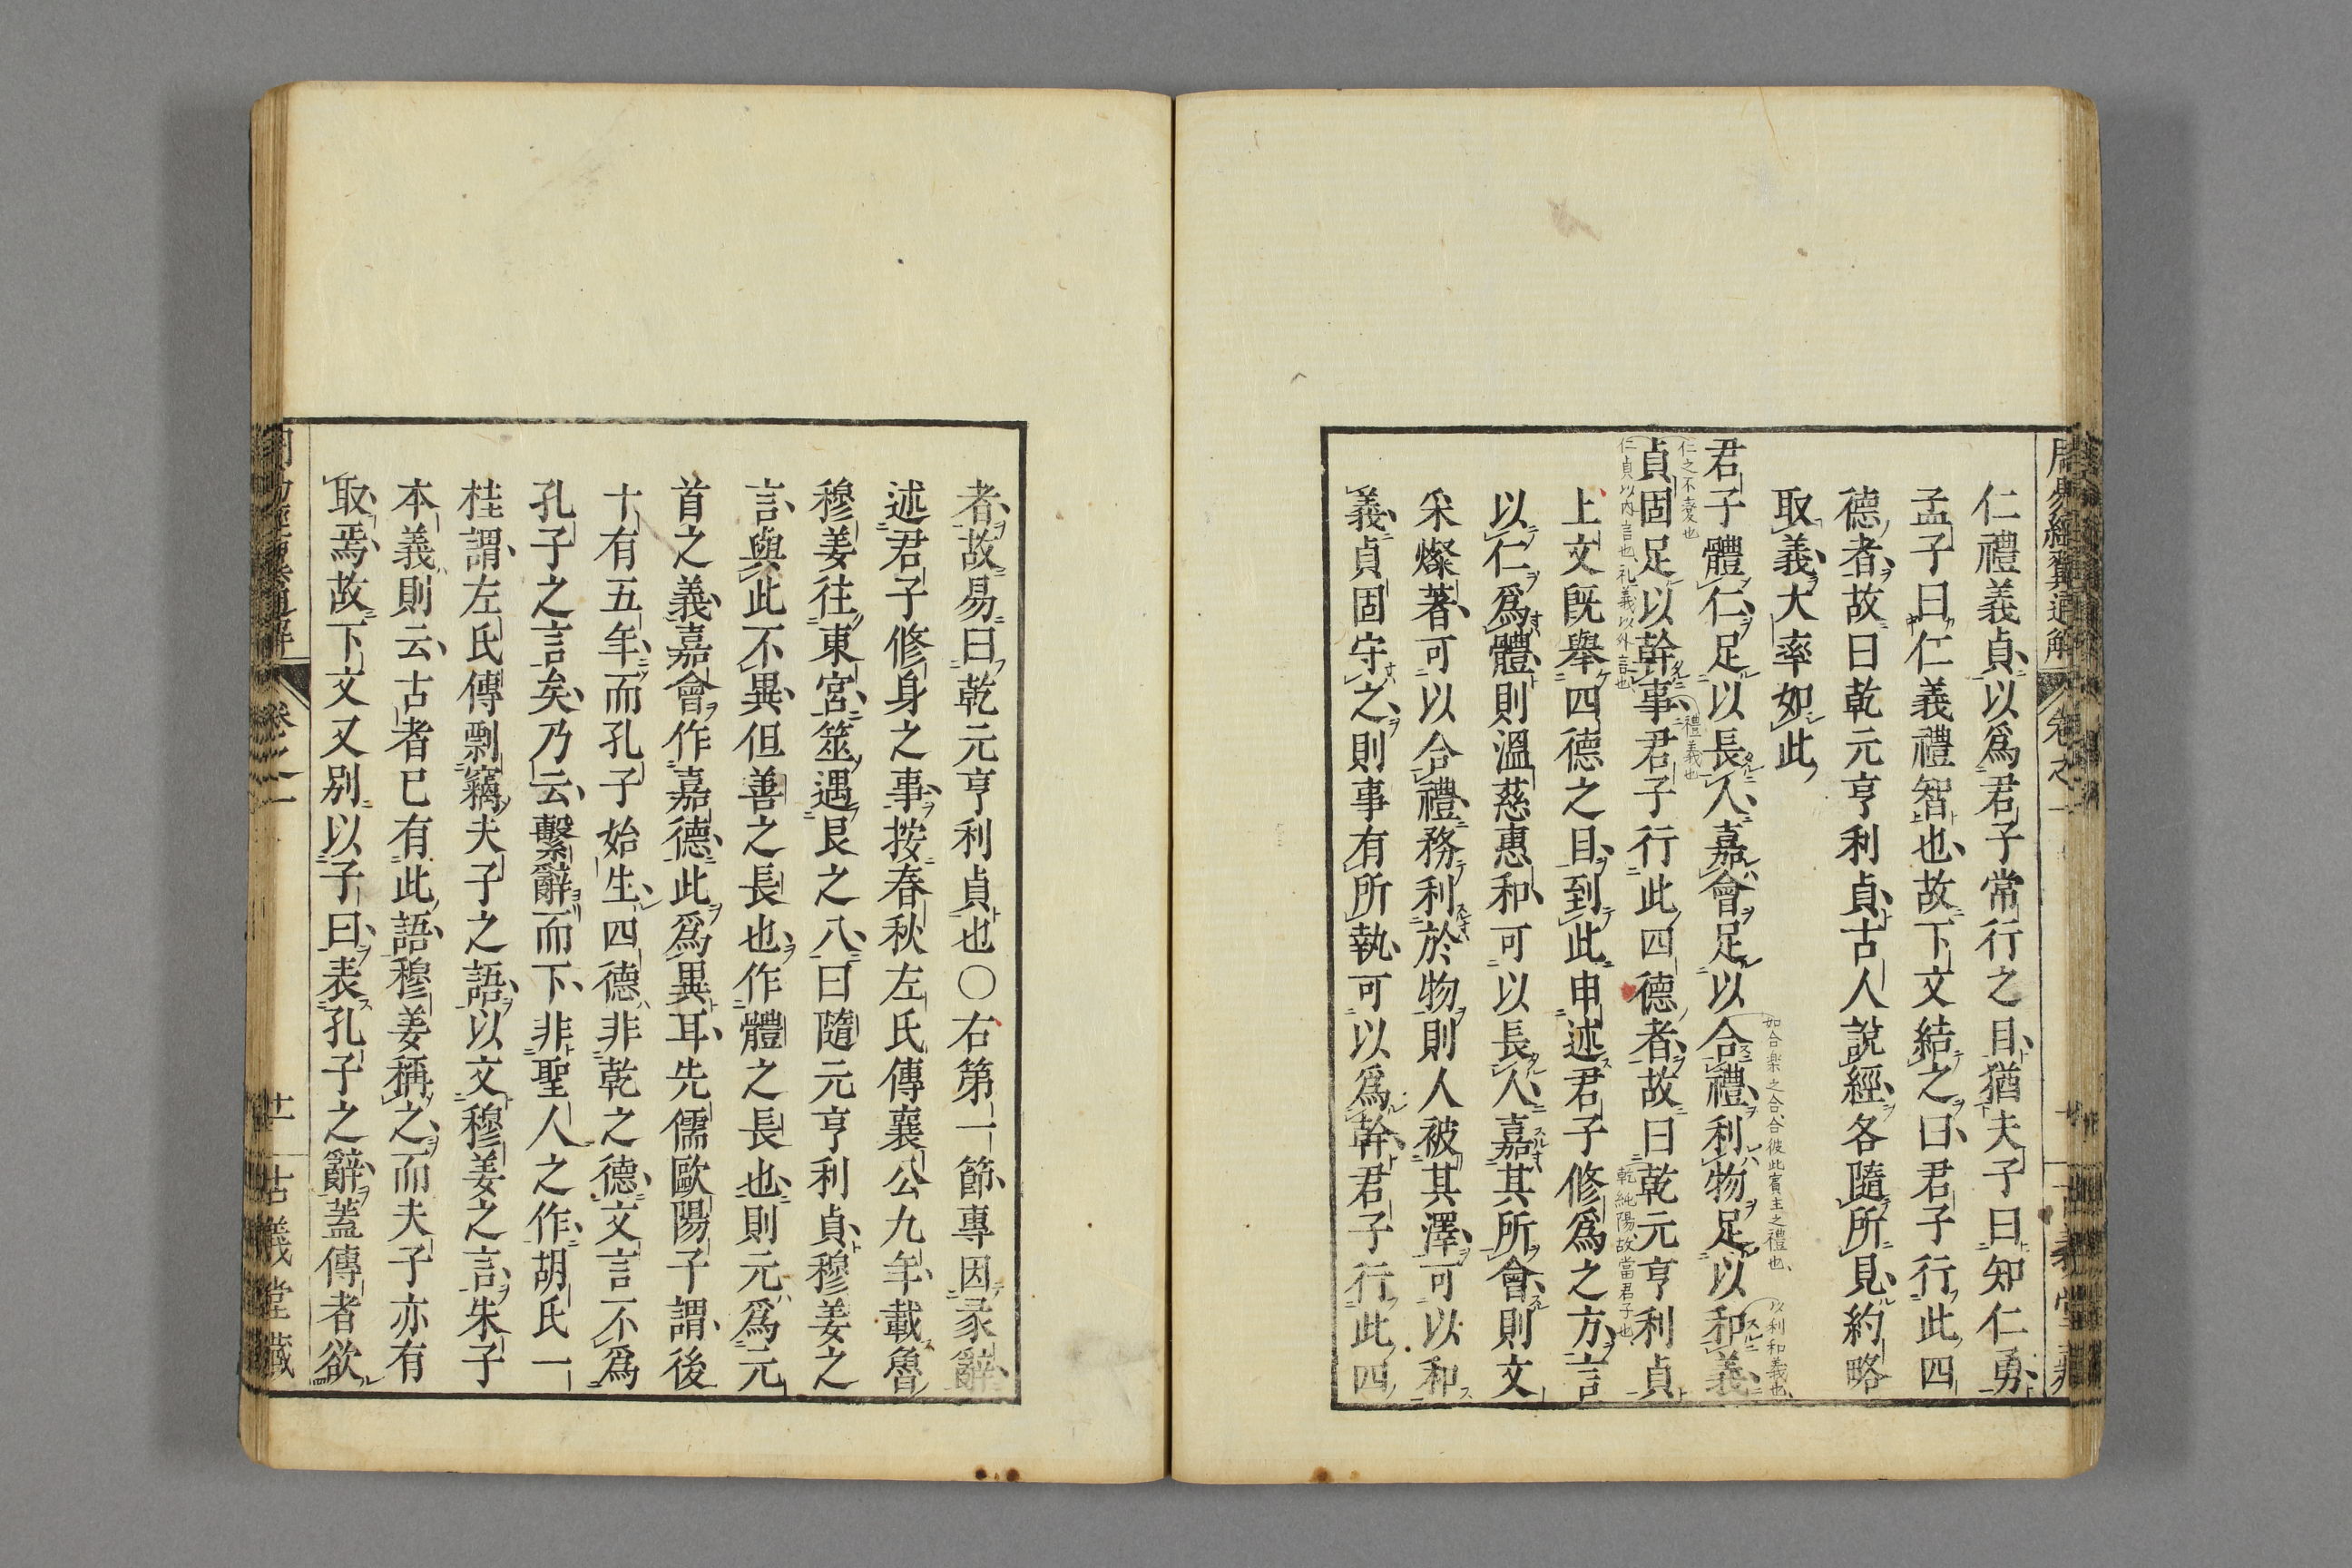 周易經翼通解 卷之一
仁禮義貞以爲君子常行之目猶夫子曰知仁勇
孟子曰仁義禮智也故下文結之曰君子行此四
德者故曰乾元亨利貞古人說經各隨所見約略
取義大率如此
如合楽之合合彼此賓主之禮也
以利和義也
君子體仁足以長人嘉會足以合禮利物足以和義
仁之不変也
禮義也
貞固足以幹事君子行此四德者故曰乾元亨利貞
仁貞以内言也礼義以外言也
乾純陽故當君子也
上文既舉四德之目到此申述君子修爲之方言
以仁爲體則溫慈惠和可以長人嘉其所會則文
采燦著可以合禮務利於物則人被其澤可以和
義貞固守之則事有所執可以爲幹君子行此四
者故易曰乾元亨利貞也〇右第一節專因彖辭
述君子修身之事按春秋左氏傳襄公九年載魯
穆姜往東宮筮遇艮之八曰隨元亨利貞穆姜之
言與此不異但善之長也作體之長也則元爲元
首之義嘉會作嘉德此爲異耳先儒歐陽子謂後
十有五年而孔子始生四德非乾之德文言不爲
孔子之言矣乃云繫辭而下非聖人之作胡氏一
桂謂左氏傳剽竊夫子之語以文穆姜之言朱子
本義則云古者已有此語穆姜稱之而夫子亦有
取焉故下文又別以子曰表孔子之辭蓋傳者欲
卷之一 廿一 古義堂藏